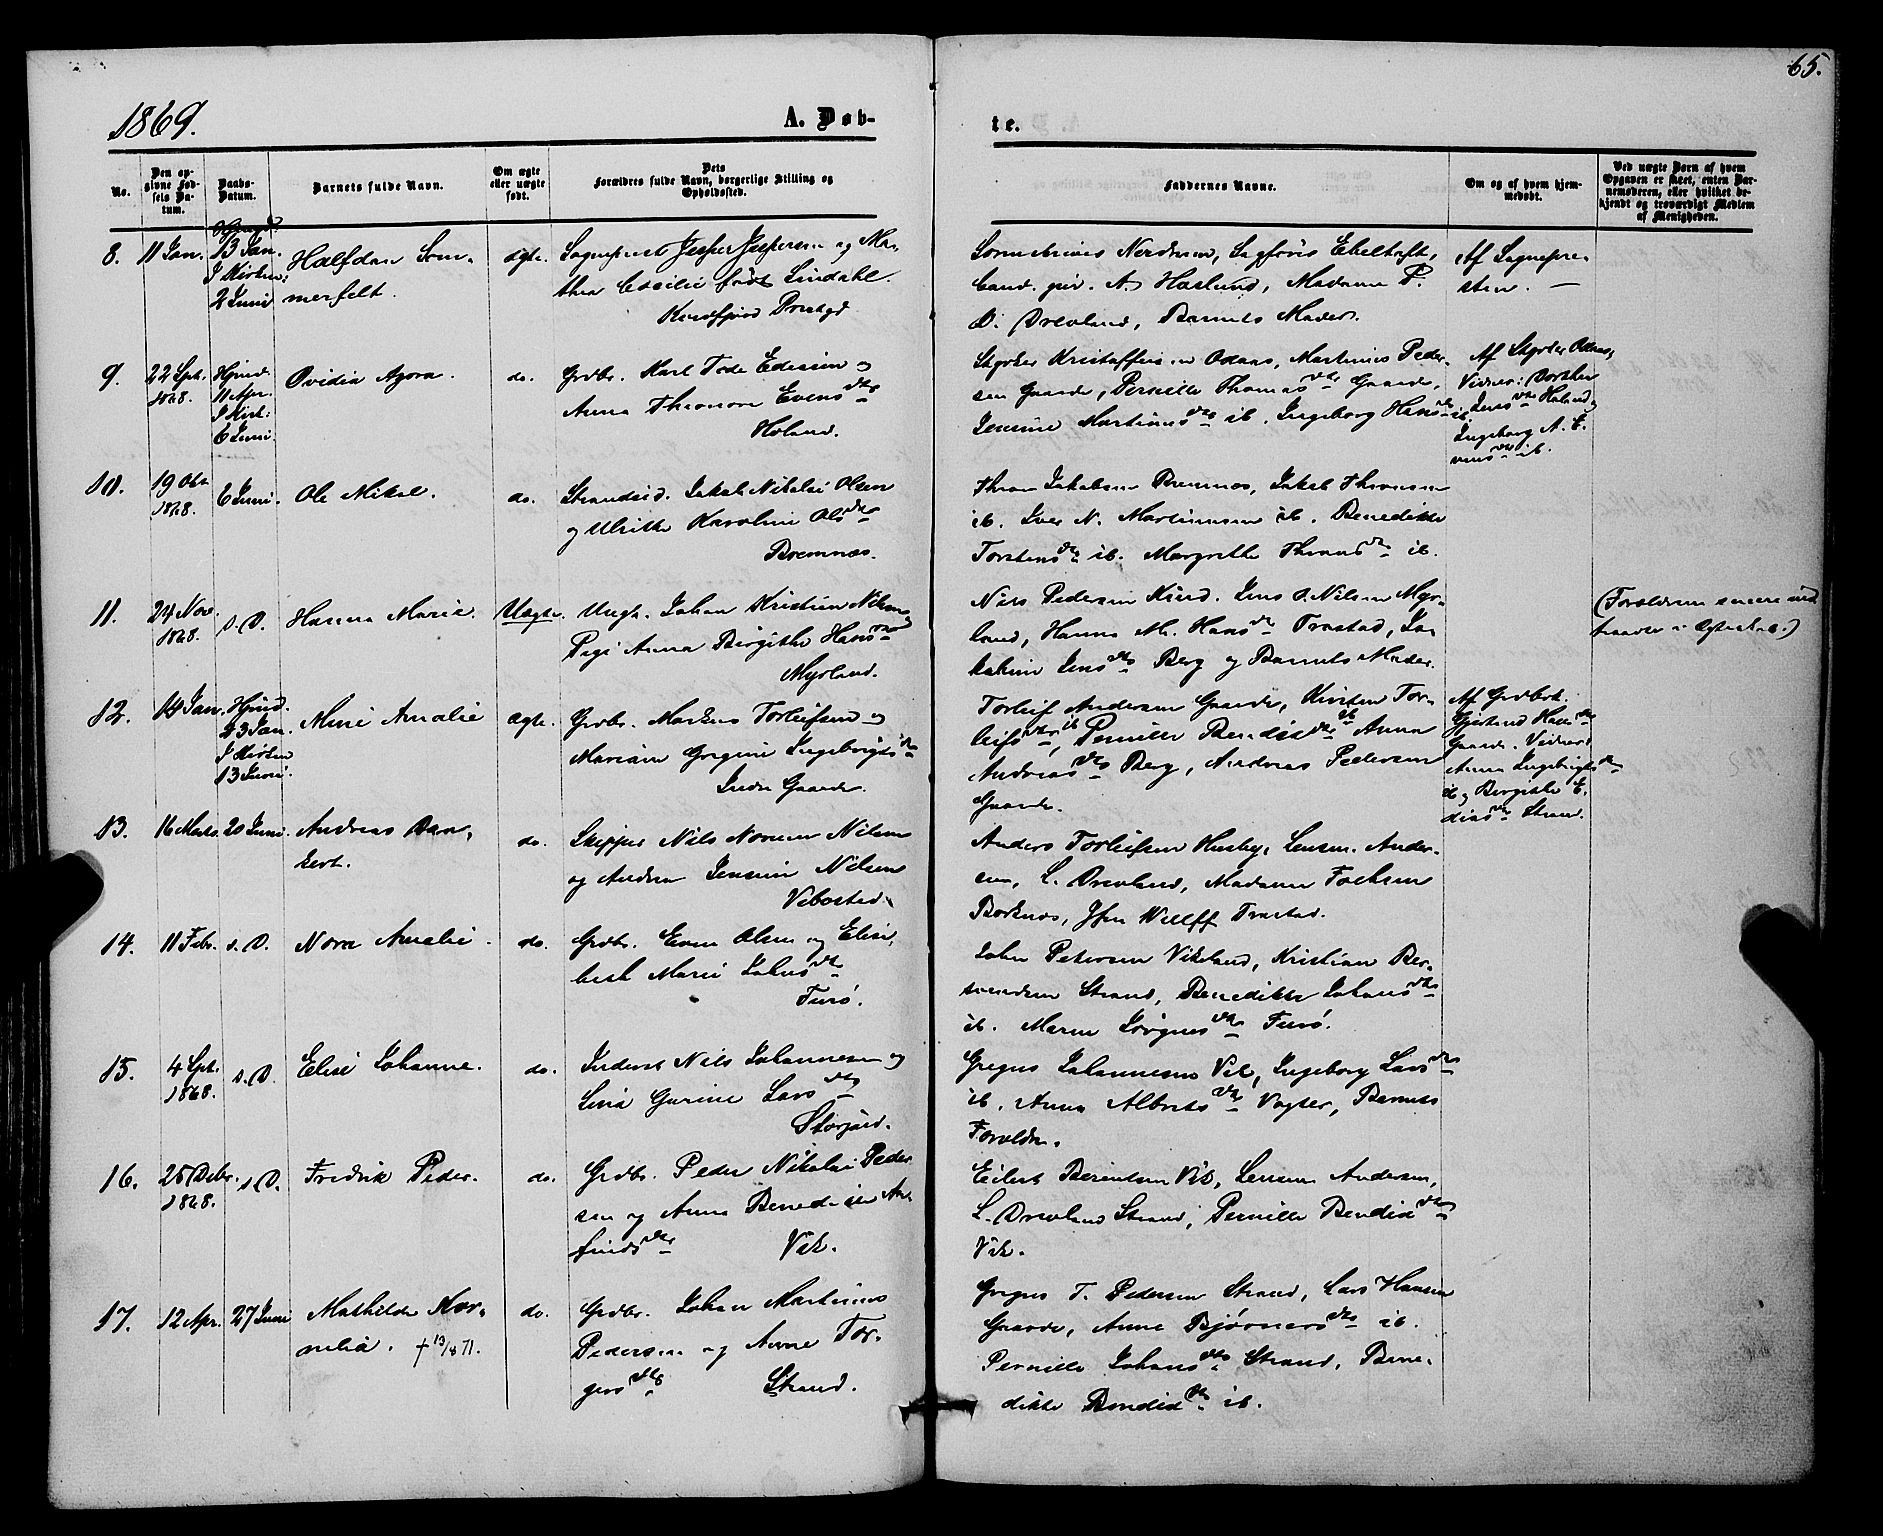 65.
1869.
A. Døb-
te.
No.
Den op-
givne Fød-
sels Da-
tum.
Daabs-
Datum.
Barnets fulde Navn.
Om ægte
eller uægte
født.
Dets
Forældres fulde Navn, borgerlige Stilling og
Opholdssted.
Faddernes Navne.
Om og af hvem hjem-
medøbt.
Ved uægte Børn af hvem
Opgaven er skeet, enten Bar-
nemoderen, eller hvilket be-
kjendt og troværdigt Medlem
af Menigheden.
8.
11 Jan.
13 Jan.
I Kirken:
2 Juni
Halfdan Som-
merfelt.
ægte.
Sognepræst Jesper Jespersen og Ma-
thea Cecilie født Lindahl.
Prstgd.
A. Haslund, Madame P.
D. Drevland, Barnets Moder.
Af Sognepre-
sten. —
9.
22 Spt.
1868.
Hjmd.
11 Apr.
I Kirk:
6 Juni
Ovidia Agora.
do.
Grdbr. Karl Tode Edissen og
Anna Theonora Evens dtr
Holand.
Styrker Kristoffersen Odaas, Martinus Peder-
sen Gaarde, Pernille Thomas dtr Gaarde,
Jensine Martinus dtr ib. Ingeborg Hans dtr ib.
Af Styrker Odaas,
Vidner: Dorthea
Jens dtr Holand og
Ingeborg A. E-
vens dtr ib.
10.
19 Okt.
1868.
6 Juni.
Ole Mikal.
do.
Strandsid. Jakob Nikolai Olsen
og Ulrikke Karoline Ols dtr
Bremnæs.
Thron Jakobsen Bremnes, Jakob Thronsen
ib. Iver N. Martinussen ib. Benedikte
Torstens dtr ib. Margrethe Throns dtr ib.
11.
24 Nov.
1868.
s. D.
Hanna Marie.
Uægte.
Ungk. Johan Kristian Nilsen og
Pige Anna Birgithe Hans dtr
Myrland.
Nils Pedersen Kind. Jens O. Nilsen Myr-
land, Hanna M. Hans dtr Trastad, Ja-
kobine Jens dtr Berg og Barnets Moder.
(Forældrene senere ind
traadte i Ægteskab.)
12.
14 Jan.
Hjmd.
23 Jan.
I Kirken
13 Juni.
Mine Amalie
ægte.
Grdbr. Markus Torleifsen og
Mariane Gregine Ingebrigts dtr
Indre Gaarde.
Torleif Andersen Gaarde, Kirsten Tor-
leifs dtr ib, Pernille Bendiks dtr ib Anna
Andreas dtr Berg, Andreas Pedersen
Gaarde.
Af Grdbrk.
Gjertrud Hans dtr
Gaarde. Vidner:
Anna Ingebrigts dtr
ib og Bergithe E-
dias dtr Strand.
13.
16 Marts.
20 Juni.
Andreas Dan-
kert.
do.
Skipper Nils Norum Nilsen
og Andrea Jensine Nilsen
Vebostad.
Anders Torleifsen Husby, Lensm. Ander-
sen, L. Drevland, Madame Fochsen
Borkenes, Jfru Wulff Trastad.
14.
11 Febr.
s. D.
Nora Amalie.
do.
Grdbr. Even Olsen og Elisa-
beth Marie Johns dtr
Furø.
John Petersen Vikeland, Kristian Ber-
Strand, Benedikte Johans dtr
ib. Maren Jørgens dtr Furø.
15.
4 Spt.
1868.
s. D.
Elise Johanne.
do.
Inderst Nils Johannesen og
Lina Gurine Lars dtr
Storjord.
Gregus Johannesen Vik, Ingeborg Lars dtr
ib. Anna Alberts dtr Vogter, Barnets
Forældre.
16.
25 Debr.
1868.
s. D.
Fredrik Peder.
do.
Grdbr. Peder Nikolai Peder-
sen og Anna Benedicte Arn-
finds dtr Vik.
Eilert Berentsen Vik, Lensm. Andersen,
L. Drevland Strand, Pernille Bendix dtr
Vik.
17.
12 Apr.
27 Juni
Mathilde Kor-
nelia. † 13/8 71.
do.
Grdbr. Johan Martinus
Pedersen og Anne Tor-
gers dtr Strand.
Gregus T. Pedersen Strand, Lars Hansen
Gaarde, Anne Bjørners dtr ib.
Pernille Johans dtr Strand, Bene-
dikte Bendix dtr ib.